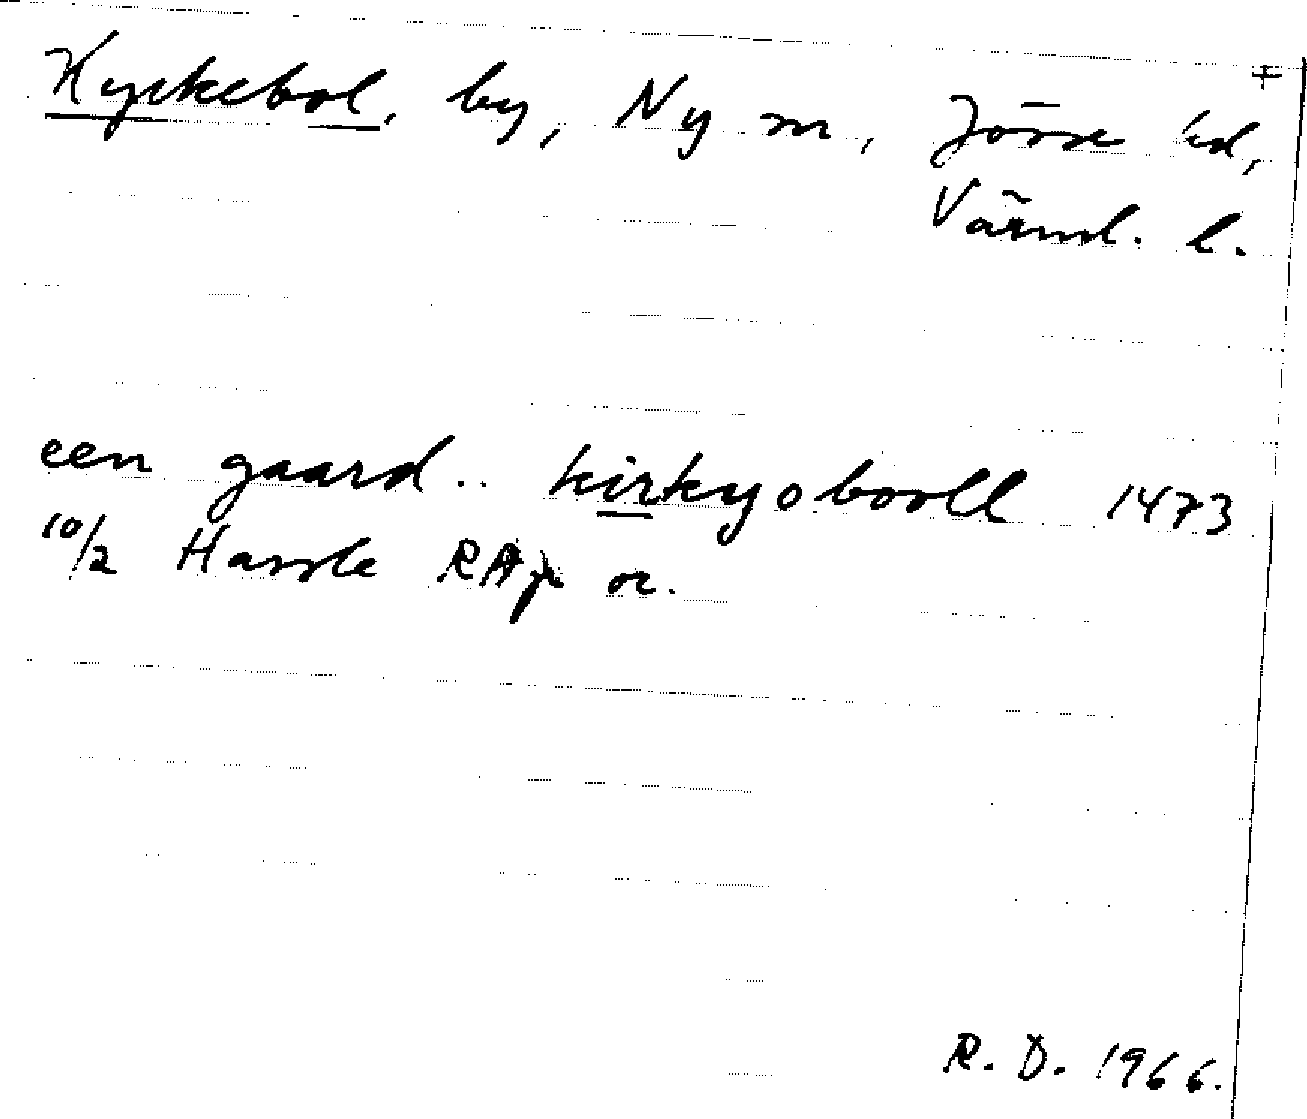 Kyrkebol, by, Ny sn, Jösse hd, ‡
Värml. l.
een gaard .. kirkyobooll 1473
10/2 Hassle RAp or.
R. D. 1966.